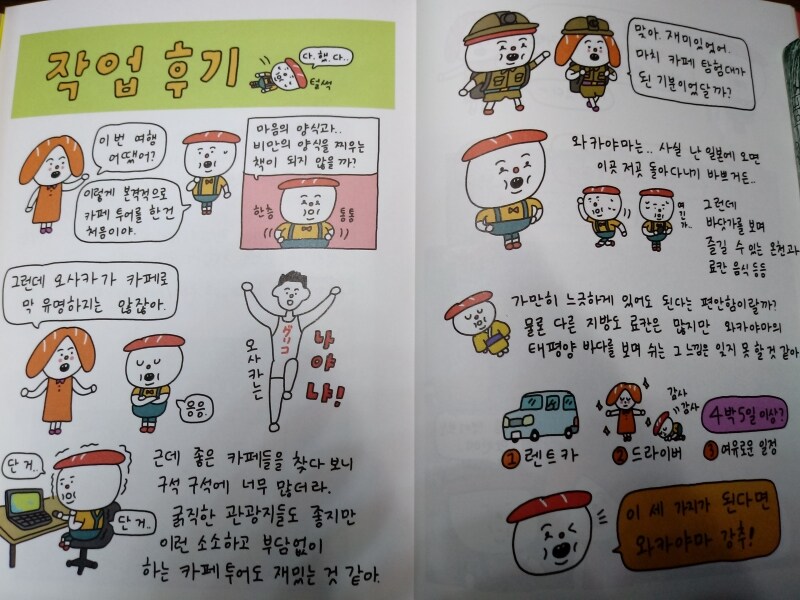 작업 후기
다.했.다..
털썩
이번 여행
어땠어?
이렇게 본격적으로
카페 투어를 한 건
처음이야.
마음의 양식과..
비만의 양식을 찌우는
책이 되지 않을까?
한층
통통
그런데 오사카가 카페로
막 유명하지는 않잖아.
응응.
오사카는
グリコ
나야
나!
단 거..
단 거..
근데 좋은 카페들을 찾다 보니
구석 구석에 너무 많더라.
굵직한 관광지들도 좋지만
이런 소소하고 부담없이
하는 카페 투어도 재밌는 것 같아.
맞아. 재미있었어.
마치 카페 탐험대가
된 기분이었달까?
와카야마는.. 사실 난 일본에 오면
이곳 저곳 돌아다니기 바쁘거든..
여긴가..
그런데
바닷가를 보며
즐길 수 있는 온천과
료칸 음식 등등
가만히 느긋하게 있어도 된다는 편안함이랄까?
물론 다른 지방도 료칸은 많지만 와카야마의
태평양 바다를 보며 쉬는 그 느낌은 잊지 못할 것 같아
감사
감사
4박5일 이상?
1 렌트카
2 드라이버
3 여유로운 일정
이 세 가지가 된다면
와카야마 강추!